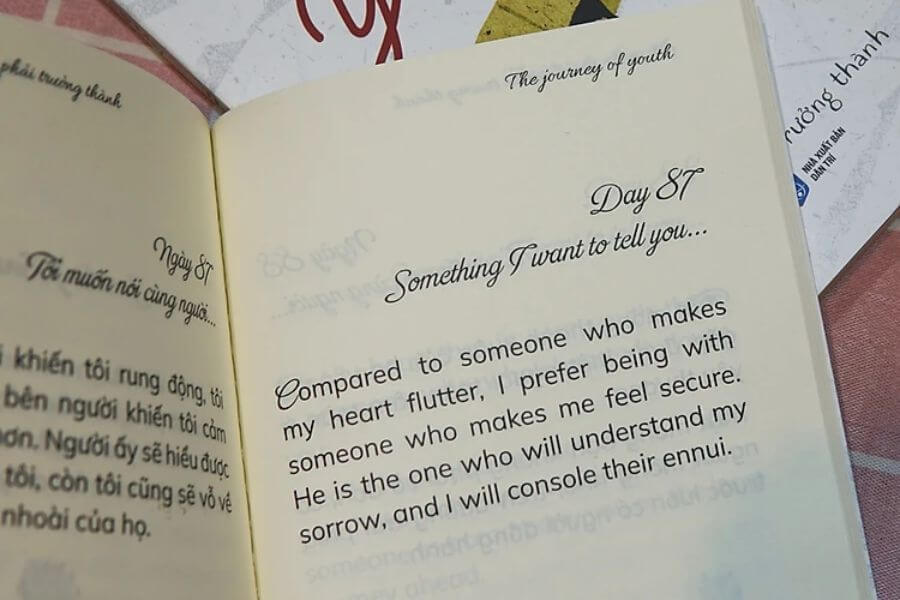 phải trưởng thành
Ngày 87
Tôi muốn nói cùng người...
khiến tôi rung động, tôi
bên người khiến tôi cảm
hơn. Người ấy sẽ hiểu được
tôi, còn tôi cũng sẽ vỗ về
nhoài của họ.
The journey of youth
Day 87
Something I want to tell you...
Compared to someone who makes
my heart flutter, I prefer being with
someone who makes me feel secure.
He is the one who will understand my
sorrow, and I will console their ennui.
trưởng thành
NHÀ XUẤT BẢN
DÂN TRÍ